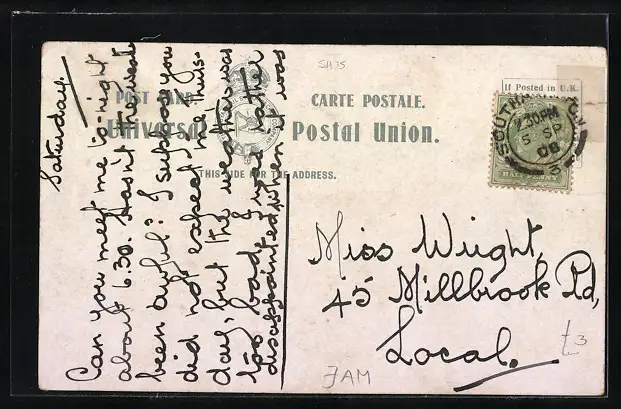 Saturday.
Can you meet me to-night
about 6.30. Hasn't the weather
been awful? I suppose you
did not expect me thurs-
day, but the weather was
too bad, I was rather
disappointed, when it was
SH35
POST CARD
CARTE POSTALE.
Universal Postal Union.
THIS SIDE FOR THE ADDRESS.
If Posted in U.K.
SOUTHAMPTON
7.30PM
5 SP
06
3
HALFPENNY
Miss Wright,
45 Millbrook Rd,
Local.
£3
JAM